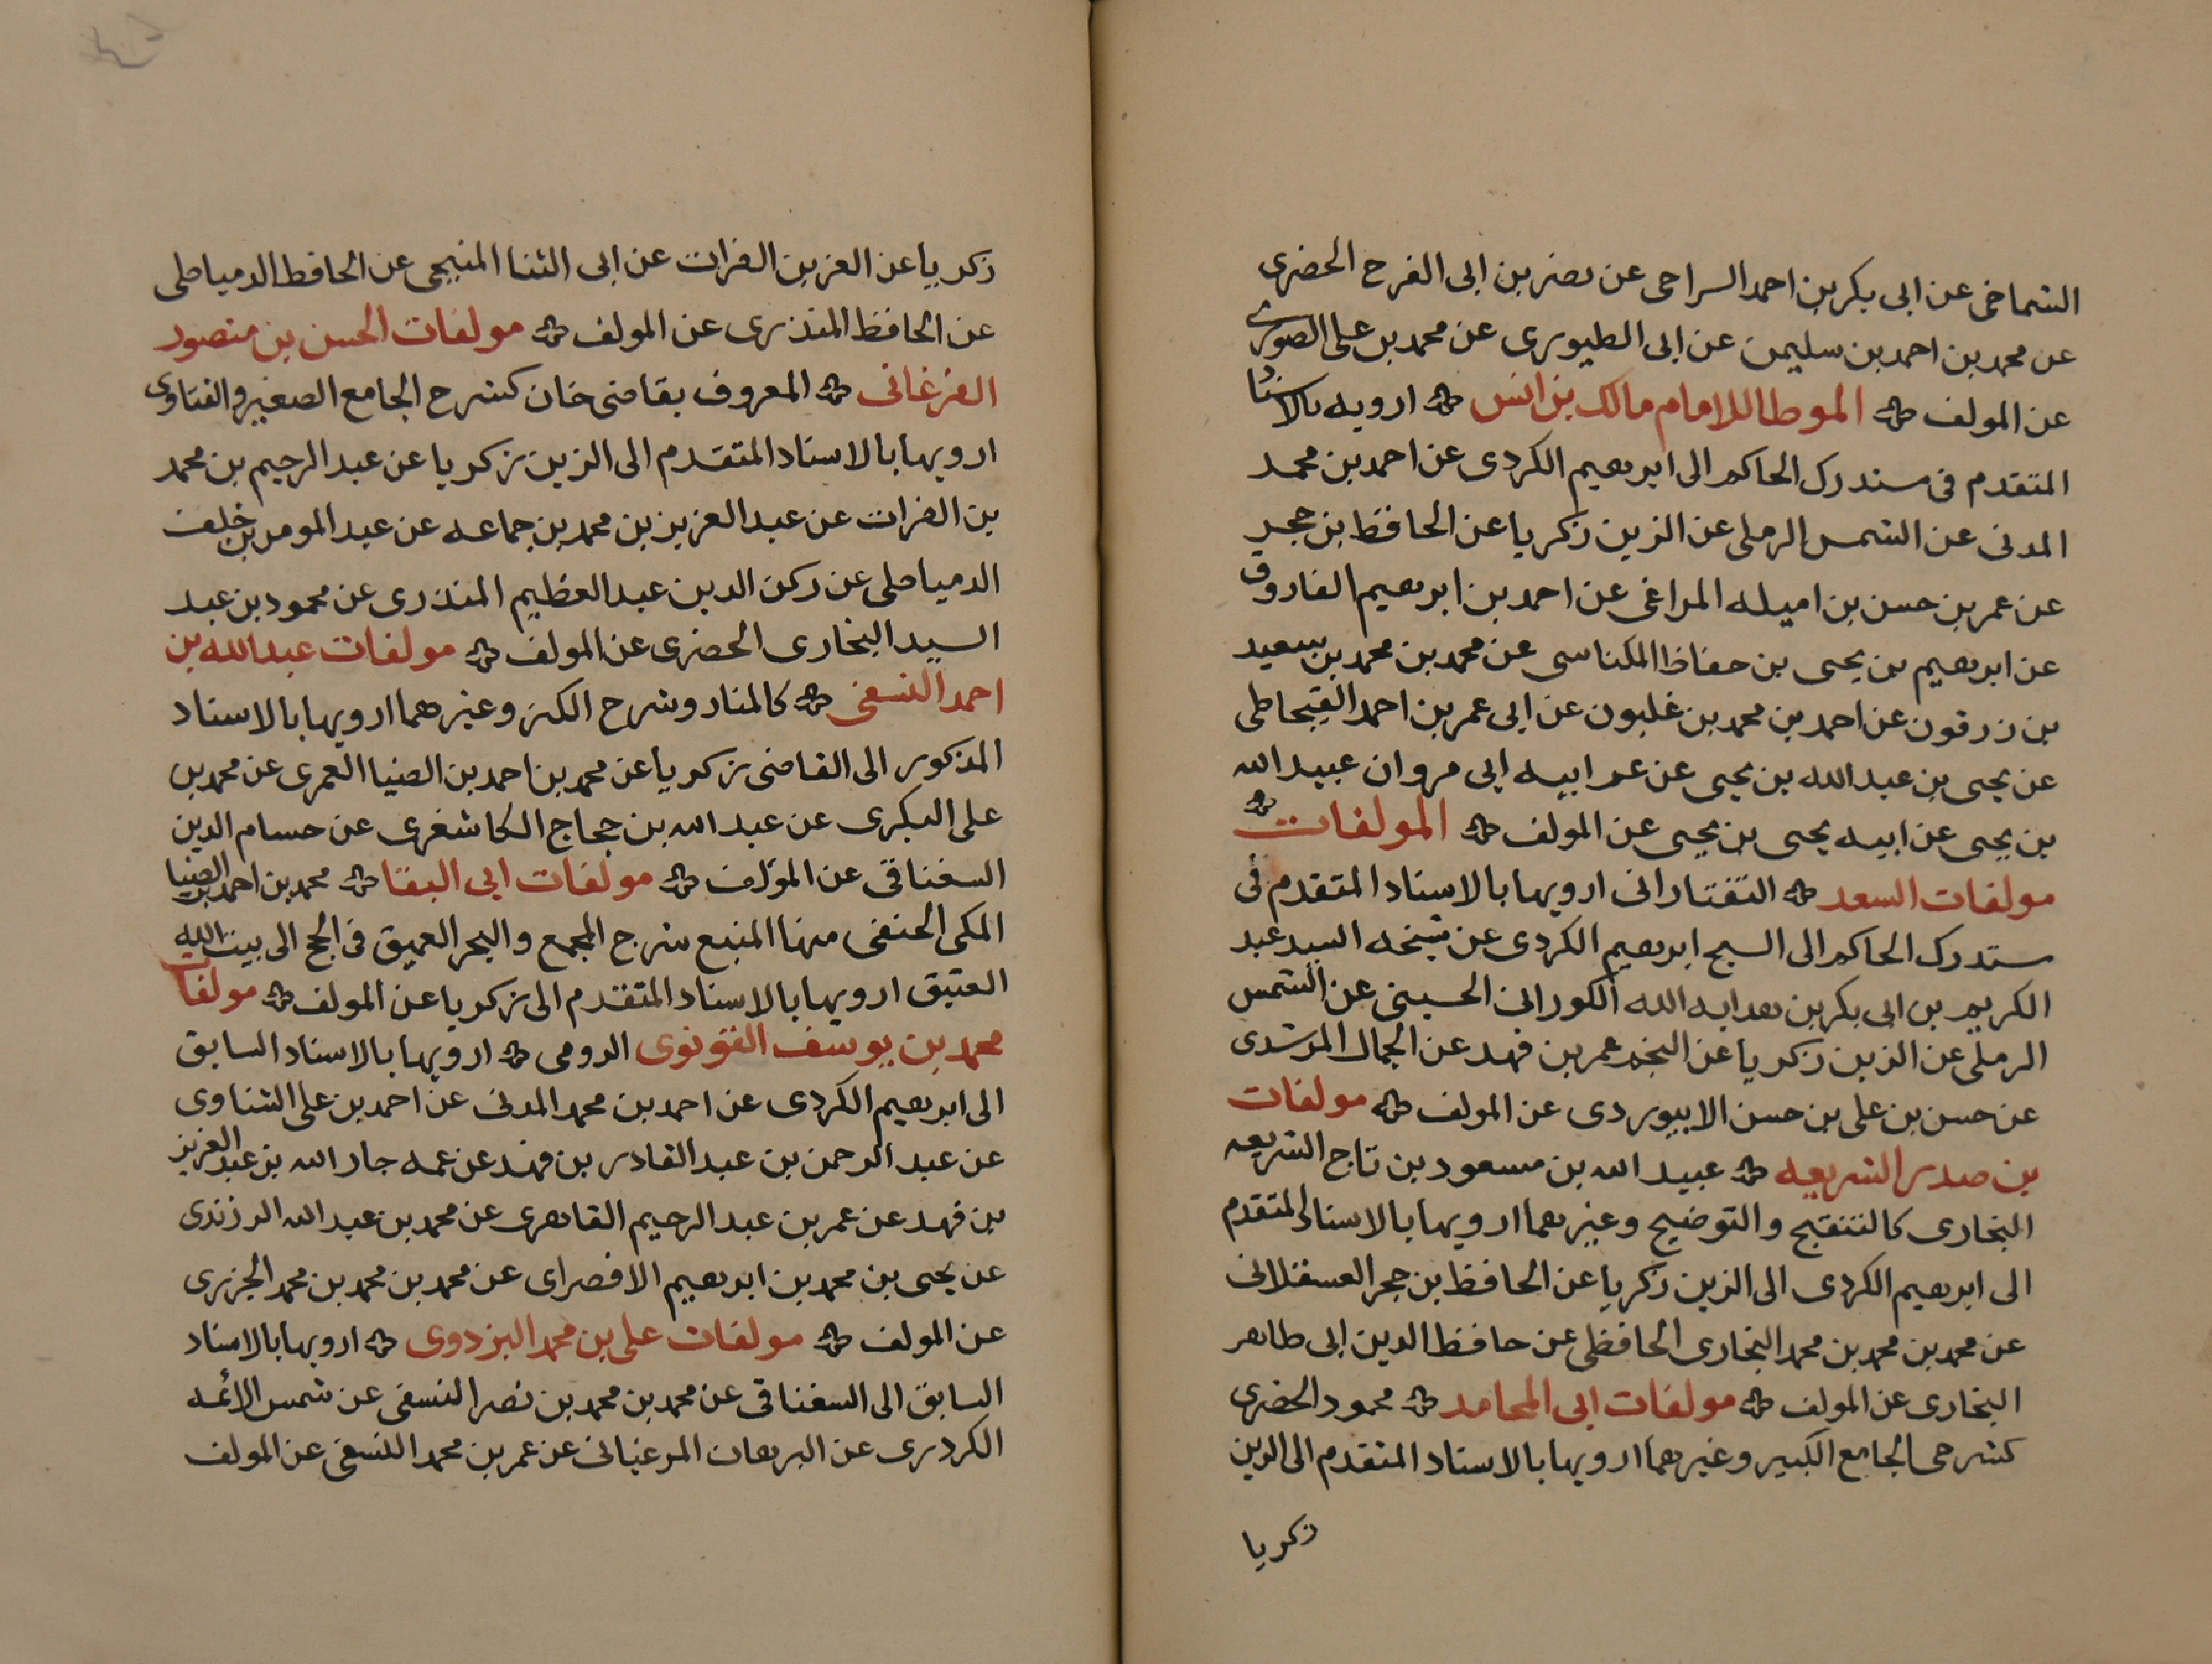 الشماخى عن ابى بكر بن احمد السراحى عن نصر بن ابى الفرج الحضرى
عن محمد بن احمد بن سليمن عن ابى الطيورى عن محمد بن على الصورى
عن المولف الموطا للامام مالك بن انس ارويه بالاسناد
المتقدم فى مستدرك الحاكم الى ابرهيم الكردى عن احمد بن محمد
المدنى عن الشمس الرملى عن الزين زكريا عن الحافظ بن حجر
عن عمر بن حسن بن اميله المراغى عن احمد بن ابرهيم الفاروقى
عن ابرهيم بن يحيى بن حفاظ المكناسى عن محمد بن محمد بن سعيد
بن زرقون عن احمد بن محمد بن غلبون عن ابى عمر بن احمد القيجاطى
عن يحيى بن عبد الله بن يحيى عن عم ابيه ابى مروان عبيد الله
بن يحيى عن ابيه يحيى بن يحيى عن المولف المولفات
مولفات السعد التفتازانى ارويها بالاسناد المتقدم فى
مستدرك الحاكم الى الشيح ابرهيم الكردى عن شيخه السيد عبد
الكريم بن ابى بكر بن هدايه الله الكورانى الحسينى عن الشمس
الرملى عن الزين زكريا عن النجم عمر بن فهد عن الجمال المرشدى
عن حسن بن على بن حسن الابيوردى عن المولف مولفات
بن صدر الشريعه عبيد الله بن مسعود بن تاج الشريعه
البخارى كالتنقيح والتوضيح وغيرهما ارويها بالاسناد المتقدم
الى ابرهيم الكردى الى الزين زكريا عن الحافظ بن حجر العسقلانى
عن محمد بن محمد بن محمد البخارى الحافظى عن حافظ الدين ابى طاهر
البخارى عن المولف مولفات ابى المحامد محمود الحضرى
كشرحى الجامع الكبير وغيرهما ارويها بالاسناد المتقدم الى الزين
زكريا
زكريا عن العز بن الفرات عن ابى الثنا المنبجى عن الحافظ الدمياطى
عن الحافظ المنذرى عن المولف مولفات الحسن بن منصور
الفرغانى المعروف بقاضى خان كشرح الجامع الصغير والفتاوى
ارويها بالاسناد المتقدم الى الزين زكريا عن عبد الرحيم بن محمد
بن الفرات عن عبد العزيز بن محمد بن جماعه عن عبد المومن بن خلف
الدمياطى عن ركن الدين عبد العظيم المنذرى عن محمود بن عبد
السيد البخارى الحضرى عن المولف مولفات عبد الله بن
احمد النسفى كالمنار وشرح الكنز وغيرهما ارويها بالاسناد
المذكور الى القاضى زكريا عن محمد بن احمد بن الضيا العمرى عن محمد بن
على البكرى عن عبد الله بن حجاج الكاشغرى عن حسام الدين
السغناقى عن المؤلف مولفات ابى البقا محمد بن احمد بن الضيا
المكى الحنفى منها المنبع شرح المجمع والبحر العميق فى الحج الى بيت الله
العتيق ارويها بالاسناد المتقدم الى زكريا عن المولف مولفات
محمد بن يوسف القونوى الرومى ارويها بالاسناد السابق
الى ابرهيم الكردى عن احمد بن محمد المدنى عن احمد بن على الشناوى
عن عبد الرحمن بن عبد القادر بن فهد عن عمه جار الله بن عبد العزيز
بن فهد عن عمر بن عبد الرحيم القاهرى عن محمد بن عبد الله الرزندى
عن يحيى بن محمد بن ابرهيم الاقصراى عن محمد بن محمد بن محمد الجزرى
عن المولف مولفات على بن محمد البزدوى ارويها بالاسناد
السابق الى السغناقى عن محمد بن محمد بن نصر النسفى عن شمس الائمه
الكردرى عن البرهان المرغينانى عن عمر بن محمد النسفى عن المولف